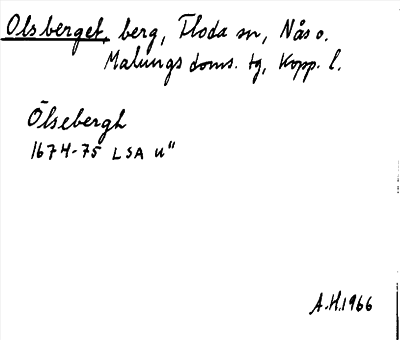 Olsberget, berg, Floda sn, Nås o.
Malungs doms. tg, Kopp. l.
Ölsebergh
1674-75 LSA u"
A.H. 1966